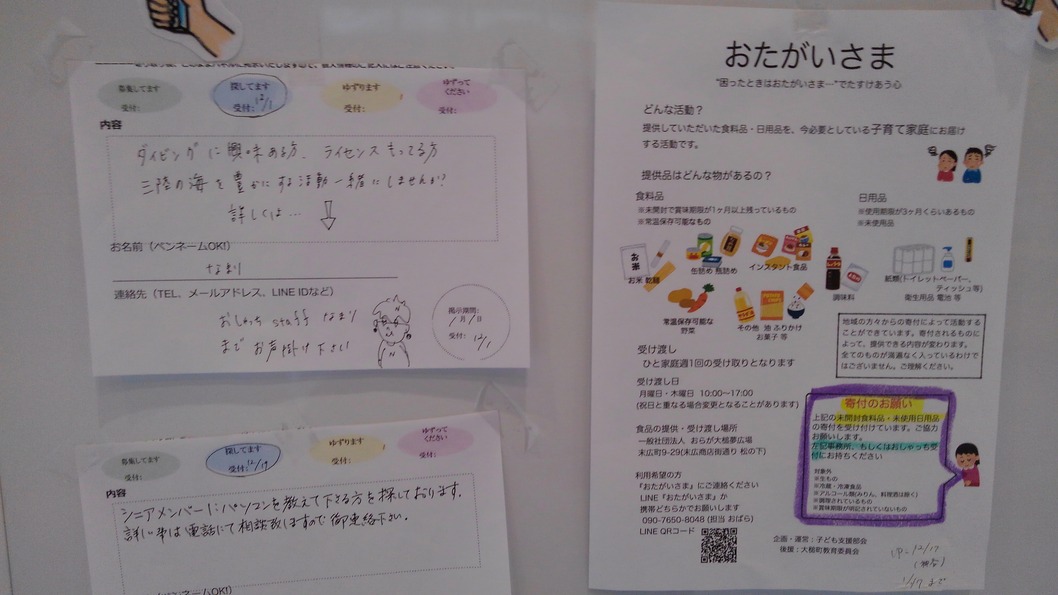 募集してます
受付:
探してます
受付: 12/1
ゆずります
受付:
ゆずって
ください
受付:
内容
ダイビングに興味ある方、ライセンスもってる方
三陸の海を豊かにする活動一緒にしませんか?
詳しくは…
お名前(ペンネームOK!)
なまり
連絡先(TEL、メールアドレス、LINE IDなど)
おしゃっち staff なまり
までお声掛け下さい
掲示期間:
受付: 12/1
募集してます
受付:
探してます
受付: 12/19
ゆずります
受付:
ゆずって
ください
受付:
内容
シニアメンバーにパソコンを教えて下さる方を探しております。
詳しい事は電話にて相談致しますので御連絡下さい。
(ペンネームOK!)
おたがいさま
"困ったときはおたがいさま…"でたすけあう心
どんな活動?
提供していただいた食料品・日用品を、今必要としている子育て家庭にお届け
する活動です。
提供品はどんな物があるの?
食料品
※未開封で賞味期限が1ヶ月以上残っているもの
※常温保存可能なもの
日用品
※使用期限が3ヶ月くらいあるもの
※未使用品
お米
お米 乾麺
缶詰め 瓶詰め
インスタント食品
調味料
常温保存可能な
野菜
その他 油 ふりかけ
お菓子 等
紙類(トイレットペーパー、
ティッシュ等)
衛生用品 電池 等
地域の方々からの寄付によって活動する
ことができています。寄付されるものに
よって、提供できる内容が変わります。
全てのものが満遍なく入っているわけで
はございません。ご理解ください。
受け渡し
ひと家庭週1回の受け取りとなります
受け渡し日
月曜日・木曜日 10:00~17:00
(祝日と重なる場合変更となることがあります)
食品の提供・受け渡し場所
一般社団法人 おらが大槌夢広場
末広町9-29(末広商店街通り 松の下)
利用希望の方
『おたがいさま』にご連絡ください
LINE『おたがいさま』か
携帯どちらかでお願いします
090-7650-8048 (担当 おばら)
LINE QRコード
寄付のお願い
上記の未開封食料品・未使用日用品
の寄付を受け付けています。ご協力
お願いします。
左記事務所、もしくはおしゃっち受
付にお持ちください
対象外
※生もの
※冷蔵・冷凍食品
※アルコール類(みりん、料理酒は除く)
※調理されているもの
※賞味期限が明記されていないもの
企画・運営:子ども支援部会
後援:大槌町教育委員会